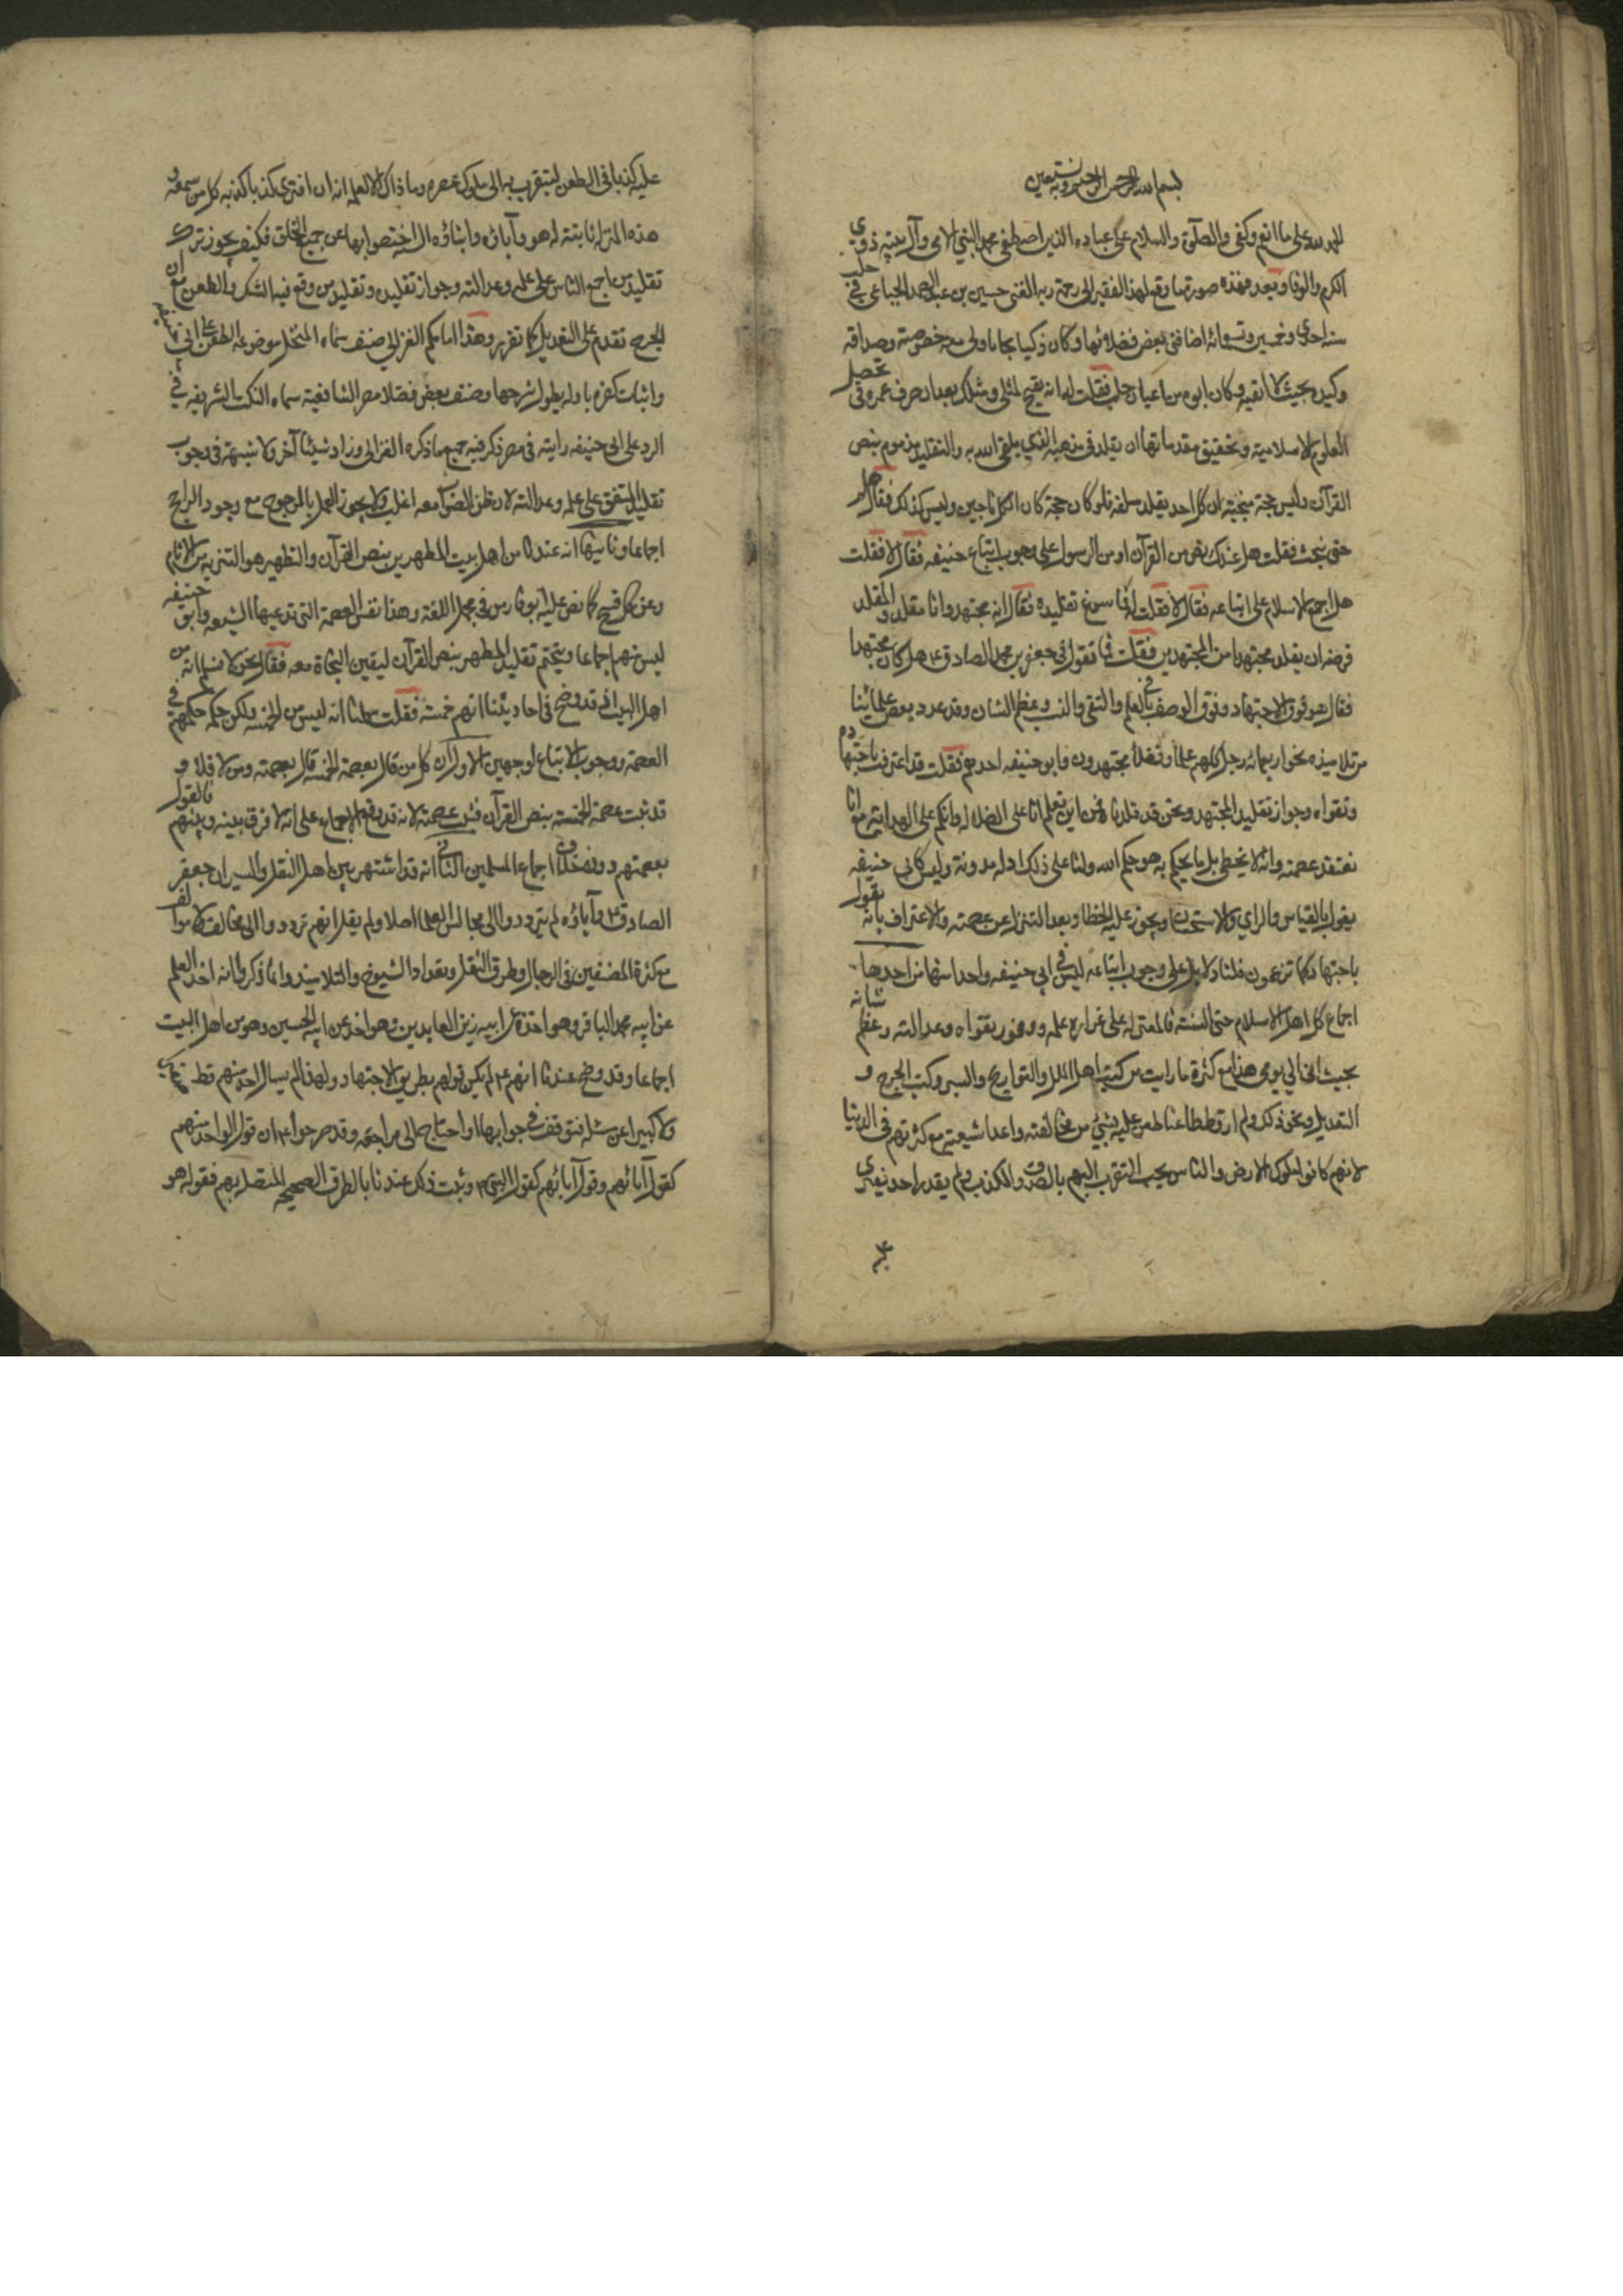 بسم الله الرحمن الرحيم وبه نستعين
الحمد لله على ما انعم وكفى والصلوة والسلام على عباده الذين اصطفى محمد النبي الامي وآل بيته ذوي
الكرم والوفا وبعد فهذه صورة ما وقع لهذا الفقير الى رحمة ربه الغنى حسين بن عبد الصمد الجباعي في حلب
سنة احدى وخمسين وتسعمائة اضافني بعض فضلائها وكان ذكيا بحاثا ولى معه خصوصية وصداقة
وكيدة بحيث لا اتقيه وكان ابوه من اعيان حلب فقلت له انه يقبح لمثلي ومثلك بعد ان صرف عمره في تحصيل
العلوم الاسلامية وتحقيق مقدماتها ان يقلد في مذهبه الذي يلقى الله به والتقليد مذموم بنص
القرآن وليس حجة منجية لان كل احد يقلد سلفه فلو كان حجة كان الكل ناجين وليس كذلك فقال هلم
حتى نبحث فقلت هل عندك نص من القرآن او من الرسول على وجوب اتباع حنيفه فقال لا فقلت
هل اجمع الاسلام على اتباعه فقال لا فقلت له فما سوغ تقليده فقال انه مجتهد وانا مقلد والمقلد
فرضه ان يقلد مجتهدا من المجتهدين فقلت فما تقول في جعفر بن محمد الصادق ع هل كان مجتهدا
فقال هو فوق الاجتهاد وفوق الوصف في العلم والتقى والنسب وعظم الشان وقد عدد بعض علمائنا
من تلاميذه نحو اربعمائة رجل كلهم علماء فضلاء مجتهدون وابو حنيفه احدهم فقلت قد اعترفت باجتهاده
وتقواه وجواز تقليد المجتهد ونحن قد قلدناه فمن اين تعلم انا على الضلالة وانكم على الهداية مع انا
نعتقد عصمته وانه لا يخطى بل ما يحكم به هو حكم الله ولنا على ذلك ادلة مدونة وليس كابي حنيفه
يقول بالقياس والراي والاستحسان ويجوز عليه الخطا وبعد التنزل عن عصمته والاعتراف بانه يقول
باجتهاد كما تزعمون فلنا دلايل على وجوب اتباعه ليس في ابي حنيفه واحد منها احدها
اجماع كل اهل الاسلام حتى السنة فالمعتزله على غزارة علمه ووفور تقواه وعدالته وعظم شانه
بحيث اني الى يومي هذا مع كثرة ما رايت من كتب اهل الملل والتواريخ والسير وكتب الجرح و
التعديل ونحو ذلك ولم ار قط طاعنا طعن عليه بشئ من مخالفيه واعدا شيعته مع كثرتهم في الدنيا
لانهم كانوا ملوك الارض والناس يحب التقرب اليهم بالصدق والكذب ولم يقدر احد يفتري
عليه كذبا في الطعن ليتقرب به الى ملوك عصره وما ذاك الا لعلمه انه ان افترى كذبا كذبه كل من سمعه و
هذه المزية ثابتة له هو وآباؤه وابناؤه الـ اختصوا بها عن جميع الخلق فكيف يجوز ترك
تقليد من اجمع الناس على علمه وعدالته وجواز تقليده وتقليد من وقع فيه الشك والطعن مع ان
الجرح تقدم على التعديل كما تقرر وهذا امامكم الغزالي صنف سماه المنخل موضوعه الطعن على ابي حنيفه
واثبات كفره بادلة يطول شرحها وصنف بعض فضلا مصر الشافعية سماه النكت الشريفه في
الرد على ابي حنيفه رايته في مصر ذكر فيه جميع ما ذكره الغزالي وزاد شيئا آخر ولا شبهة في وجوب
تقليد المتفق على علمه وعدالته لان ظن الصواب معه اغلب ولا يجوز العمل بالمرجوح مع وجود الراجح
اجماعا وثانيها انه عندنا من اهل بيت المطهرين بنص القرآن والتطهير هو التنزيه من الاثام
وعن كل قبيح كما نص عليه ابن فارس في مجمل اللغة وهذا نفس العصمة التي تدعيها الشيعه وابو حنيفه
ليس منهم اجماعا ويتحتم تقليد المطهر بنص القرآن ليقين النجاة معه فقال نحن لا نسلم انه من
اهل البيت اذ قد وضح في احاديثنا انهم خمسة فقلت سلمنا انه ليس من الخمسه ولكن حكمه حكمهم في
العصمة ووجوب الاتباع لوجهين الاول ان كل من قال بعصمة الخمسة قال بعصمته ومن لا فلا و
قد ثبت عصمة الخمسة بنص القرآن فثبت عصمته لانه قد وقع الاجماع على انه لا فرق بينه وبينهم فالقول
بعصمتهم دونه خلاف اجماع المسلمين الثاني انه قد اشتهر بين اهل النقل والسير ان جعفر
الصادق ع وآباؤه لم يترددوا الى مجالس العلما اصلا ولم يقل انهم ترددوا الى مخالف ولا موالف
مع كثرة المصنفين في الرجال وطرق النقل وتعداد الشيوخ والتلاميذ وانما ذكروا انه اخذ العلم
عن ابيه محمد الباقر وهو اخذه عن ابيه زين العابدين وهو اخذ عن ابيه الحسين وهو من اهل البيت
اجماعا وقد وضح عندنا انهم ع لم يكن قولهم بطريق الاجتهاد ولهذا لم يسال احد منهم قط صغيرا
ولا كبيرا عن مسئلة فتوقف في جوابها او احتاج الى مراجعة وقد صرحوا ع ان قول الواحد منهم
كقول آبائهم وقول آبائهم كقول النبي ص وثبت ذلك عندنا بالطرق الصحيحه المتصله بهم فقوله هو